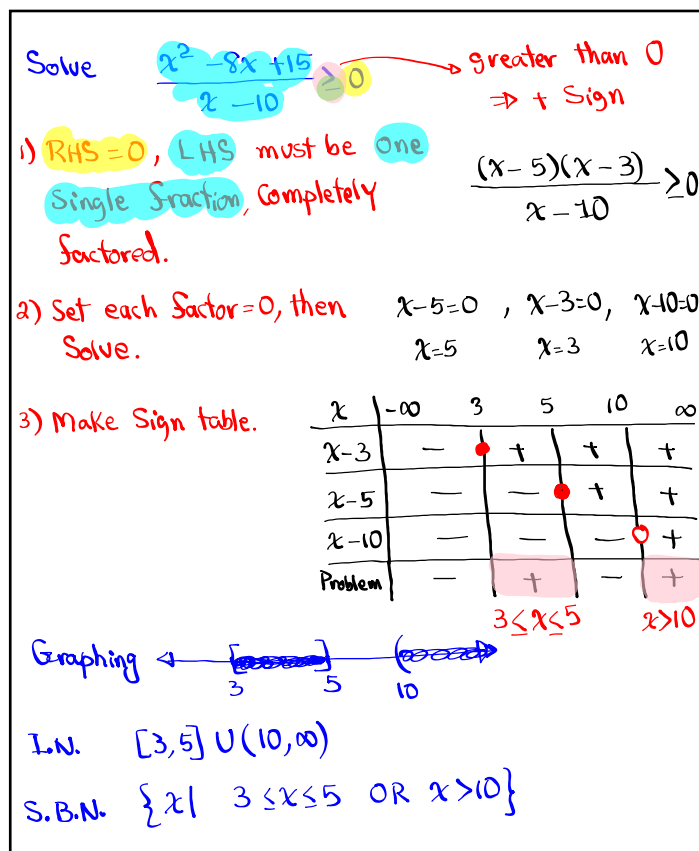 Solve x² - 8x + 15 / x - 10 ≥ 0 greater than 0
⇒ + Sign
1) RHS = 0, LHS must be one
Single fraction, Completely
factored.
(x-5)(x-3) / x-10 ≥ 0
2) Set each factor = 0, then
Solve.
x-5=0 , x-3=0, x-10=0
x=5 x=3 x=10
3) Make Sign table.
x -∞ 3 5 10 ∞
x-3 - + + +
x-5 - - + +
x-10 - - - +
Problem - + - +
3 ≤ x ≤ 5 x>10
Graphing [ ] (
3 5 10
I.N. [3,5] U (10,∞)
S.B.N. {x| 3 ≤ x ≤ 5 OR x >10}